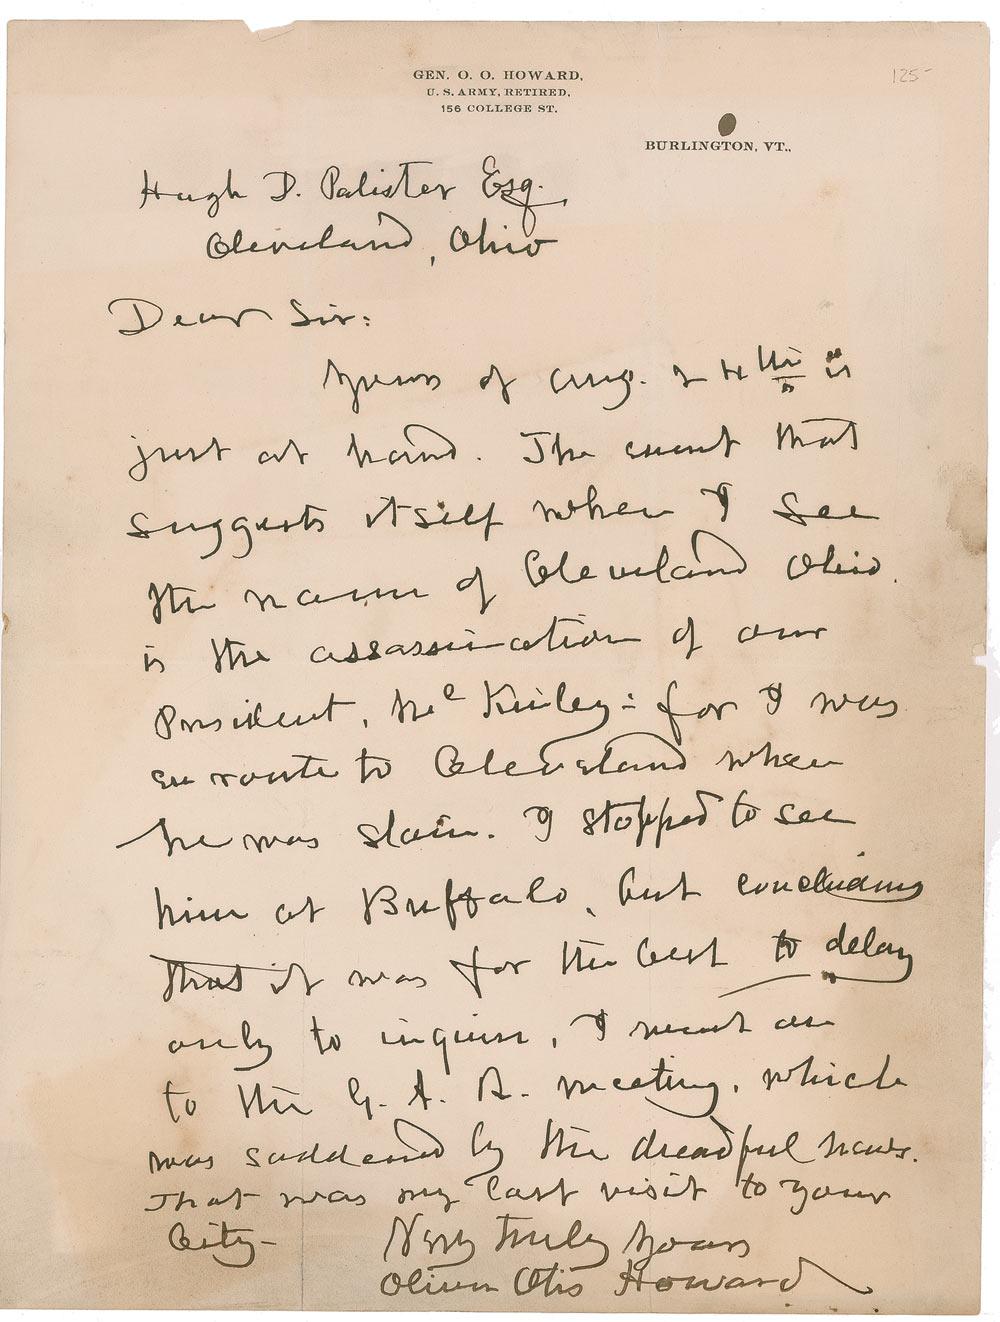 GEN. O. O. HOWARD,
U. S. ARMY, RETIRED,
156 COLLEGE ST.
125-
BURLINGTON, VT.,
Hugh D. Palister Esq.
Cleveland, Ohio
Dear Sir:
Yours of Aug. 24th is
just at hand. The event that
suggests itself when I see
the name of Cleveland Ohio.
is the assassination of our
President, McKinley: for I was
en route to Cleveland when
he was slain. I stopped to see
him at Buffalo, but concluding
that it was for the best to delay
only to inquire, I went on
to the G. A. R. meeting, which
was saddened by the dreadful news.
That was my last visit to your
City-
Very truly yours
Oliver Otis Howard